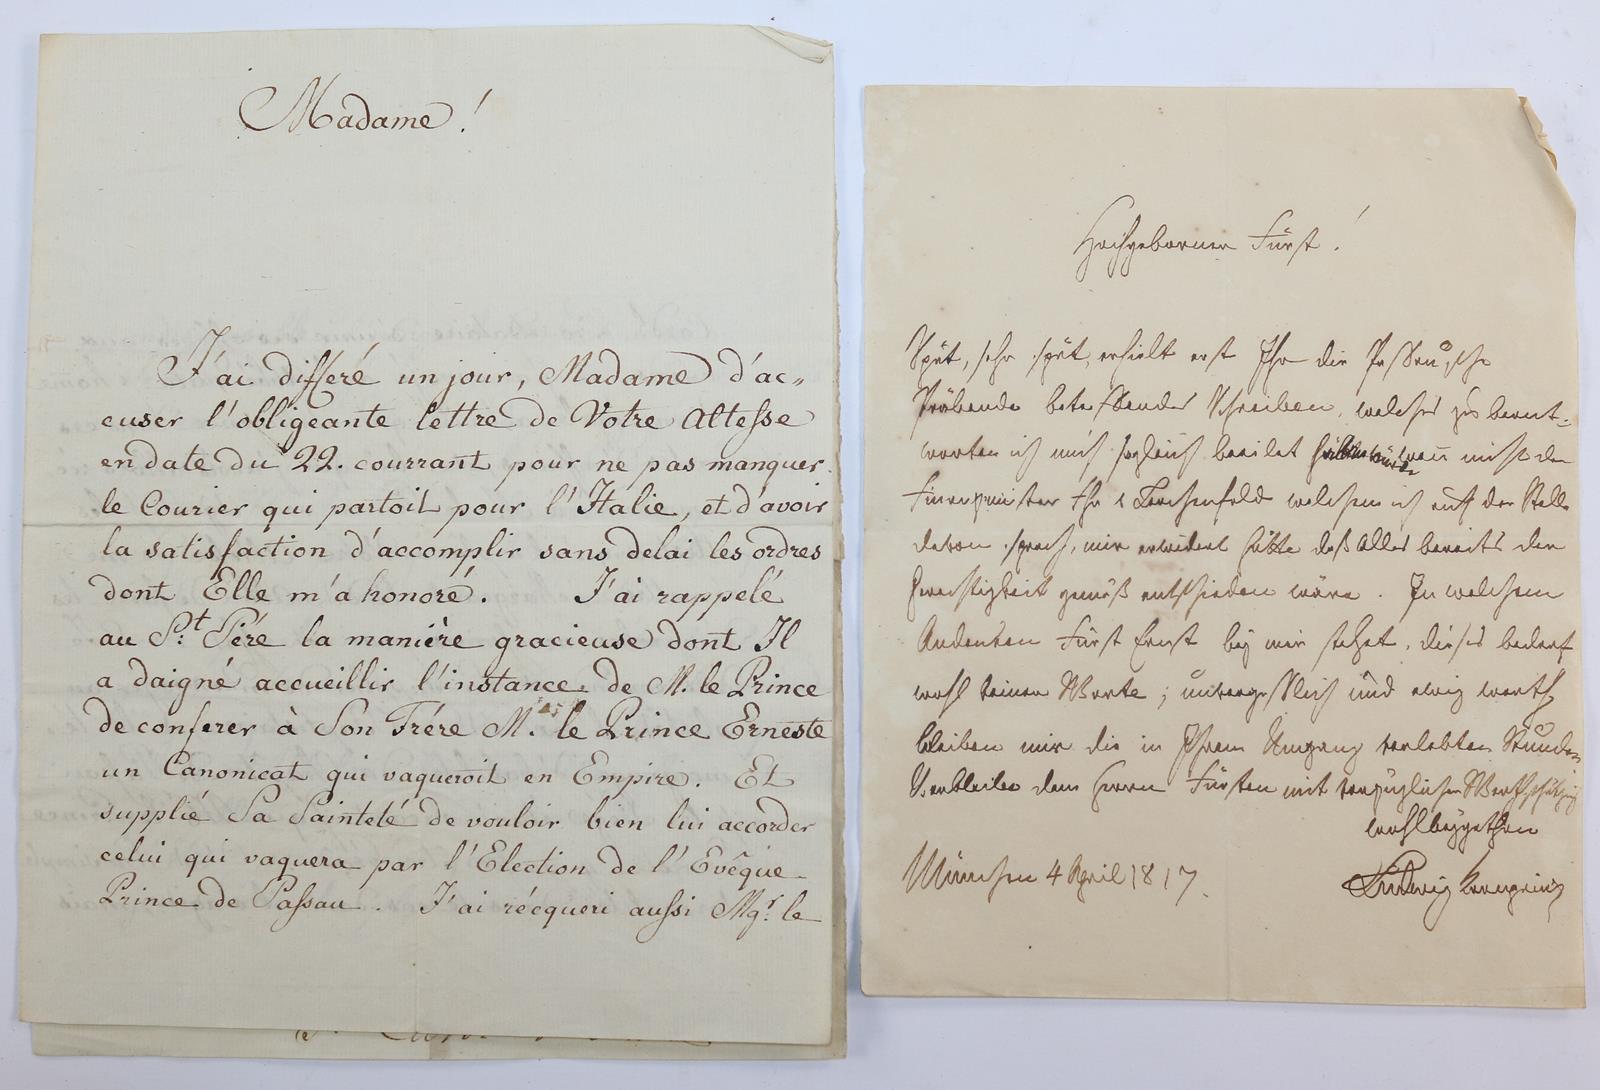 Madame!
J'ai differé un jour, Madame d'ac„
cuser l'obligeante lettre de Votre Altesse
en date du 22. courrant pour ne pas manquer
le Courier qui partoit pour l'Italie, et d'avoir
la satisfaction d'accomplir sans delai les ordres
dont Elle m'á honoré. J'ai rappelé
au S:t Pére la maniére gracieuse dont Il
a daigné accueillir l'instance de M. le Prince
de conferer à Son Frére M. le Prince Erneste
un Canonicat qui vaqueroit en Empire. Et
supplié Sa Sainteté de vouloir bien lui accorder
celui qui vaquera par l'Election de l'Evêque
Prince de Passau. J'ai récqueri aussi Mgr. le
Hochgeborner Fürst!
Spät, sehr spät, erhielt erst Ihr die
Präbende betreffendes Schreiben, welches zu beant-
worten ich mich sogleich beeilet wenn nicht der
Finanzminister Fhr v Lerchenfeld welchem ich auf der Stelle
davon sprach, mir erwidert hätte daß alles bereits der
Gerechtigkeit gemäß entschieden wäre. In welchem
Andenken Fürst Ernst bey mir stehet, dieses bedarf
wohl keiner Worte; unvergeßlich und ewig werth
bleiben mir die in Ihrem Umgang verlebten Stunden
Verbleibe dem Herrn Fürsten mit vorzüglicher Werthschätzung
wohlbeygethan
München 4 April 1817.
Ludwig Kronprinz